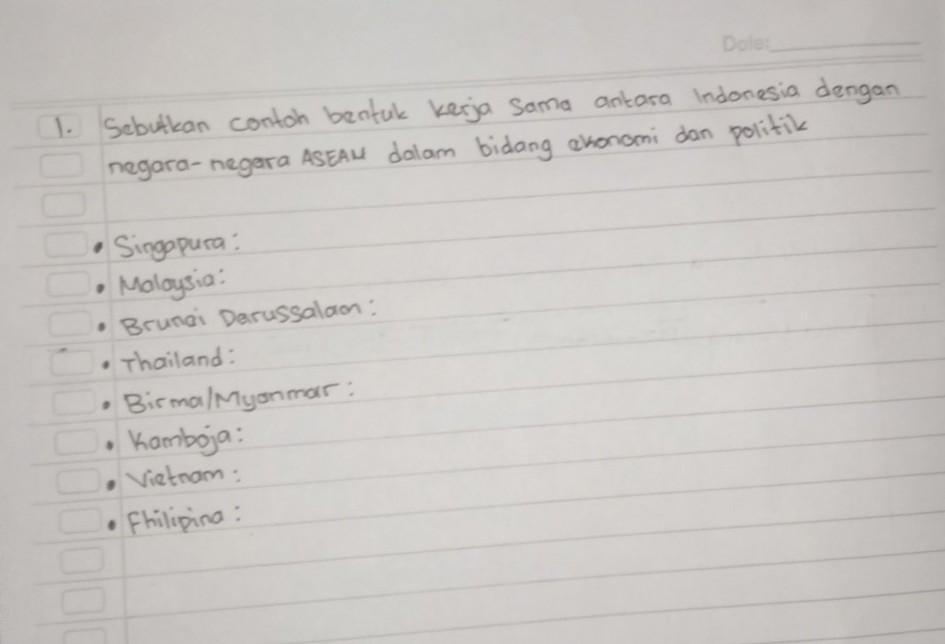 Date:
1. Sebutkan contoh bentuk kerja sama antara Indonesia dengan
negara-negara ASEAN dalam bidang ekonomi dan politik
• Singapura:
• Malaysia:
• Brunai Darussalam:
• Thailand:
• Birma/Myanmar:
• Kamboja:
• Vietnam:
• Fhilipina: